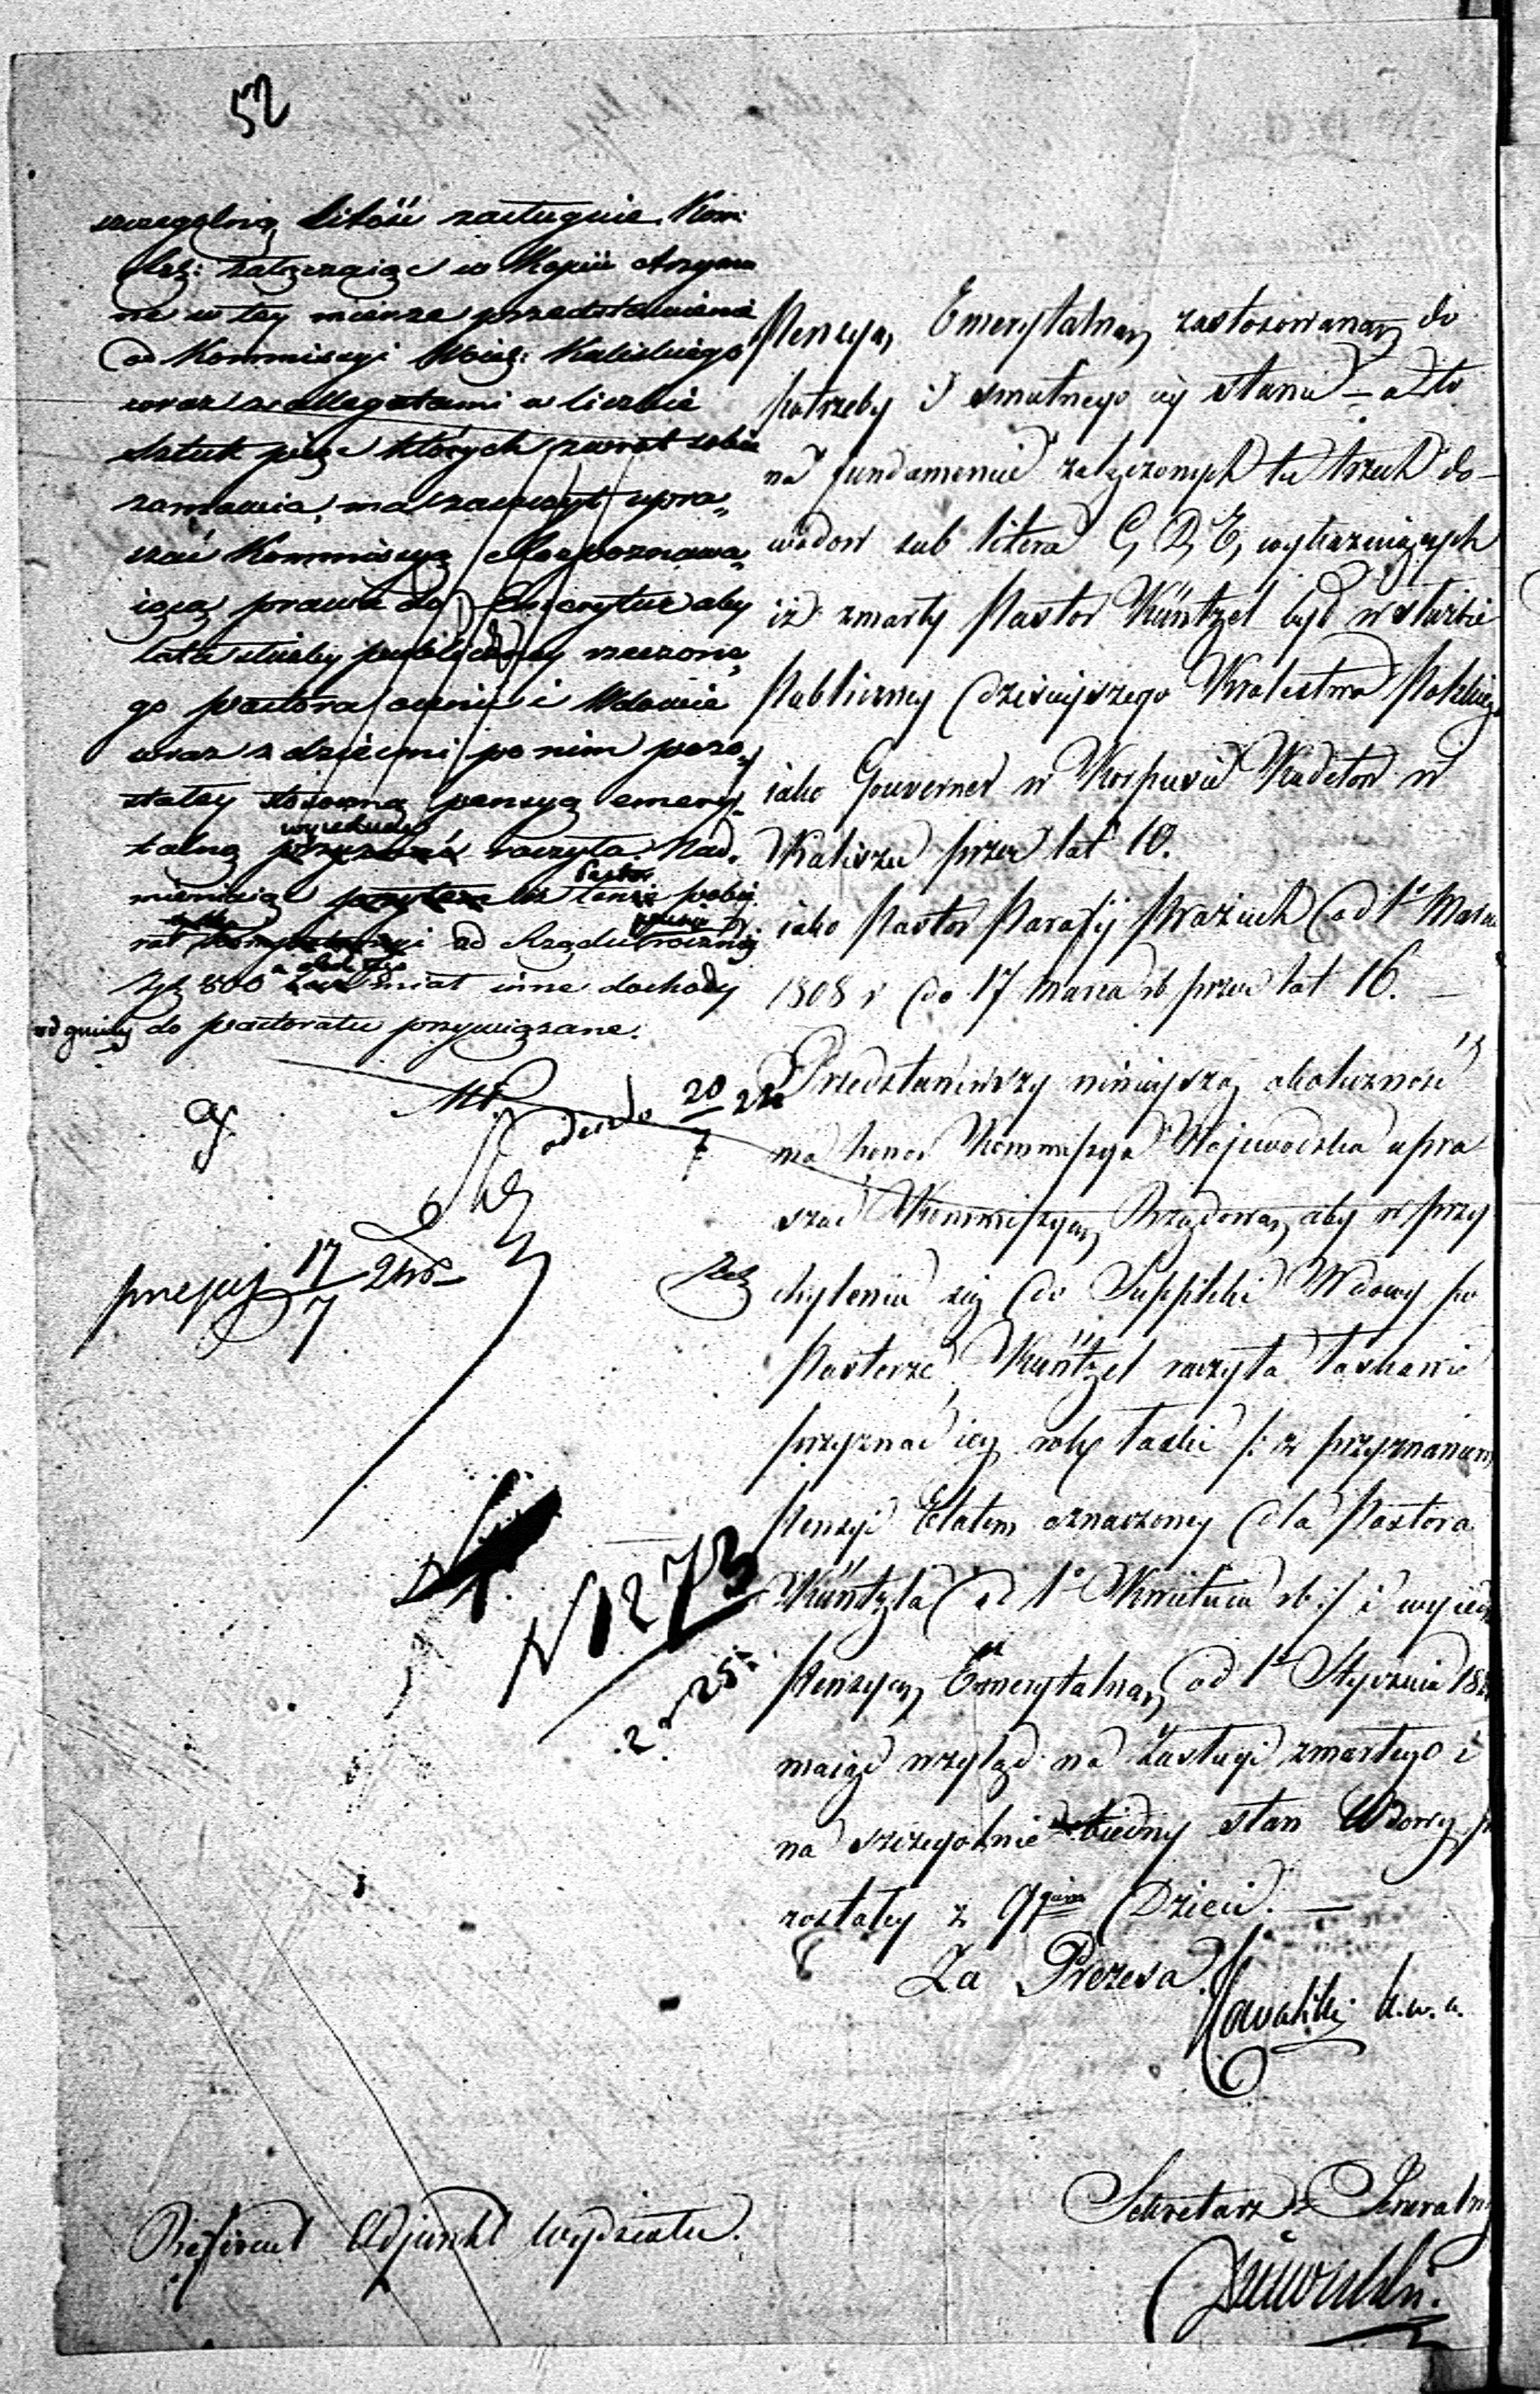 52
szczegolnią litość zasługuie. Kom:
Rz: załączaiąc w Kopii otrzyma
ne w tey mierze przedstawienie
od Kommissyi Woiew: Kaliskiego
wraz z allegatami w liczbie
sztuk pięć których zwrot sobie
zamawia, ma zaszczyt upra„
szać Kommissyą Rozpoznawa„
iącą prawa do Emerytur aby
lata służby publiczney rzeczone„
go pastora ocenić i Wdowie
wraz z dziećmi po nim pozo„
stałey stosowną pensyą emery„
talną wyiednać raczyła. Nad„
mieniaiąc iż Pastor tenże pobie
rał od Rządu rocznie
Złp 800 a obok tego miał inne dochody
od gminy do pastoratu przywiązane.
odeszło 20/7 24
przejrz 17/7 24
N 1273
2 25
Pensyą Emerytalną zastosowaną do
potrzeby i smutnego iey stanu – a to
na fundamencie załączonych tu trzech do-
wodow sub litera C, D, E, wykazuiących
iż zmarły Pastor Küntzel był w służbie
Publiczney dzisieyszego Krolestwa Polskieg
iako Gouverner w Korpusie Kadetow w
Kaliszu przez lat 10.
iako Pastor Parafij Prażuch od 1º Marca
1808 r do 17 Marca rb przez lat 16. –
Przedstawiwszy ninieyszą okoliczność
ma honor Kommissya Wojewodzka upra
szać Kommissyą Rządową, aby w przy
chyleniu się do Suppliki Wdowy po
Pastorze Küntzel raczyła łaskawie
przyznać iey rok łaski /: z przyznaniem
Pensyi Etatem oznaczoney dla Pastora
Küntzla od 1º Kwietnia rb :/ i wyied
Pensyą Emerytalną od 1º Stycznia 18
maiąc wzgląd na Zasługi zmarłego i
na szczegolnie biedny stan Wdowy po
zostałey z 9giem Dzieci. –
Za Prezesa
Kowalski k. w. k.
Sekretarz Generalny
Referent Adjunkt Wydziału.